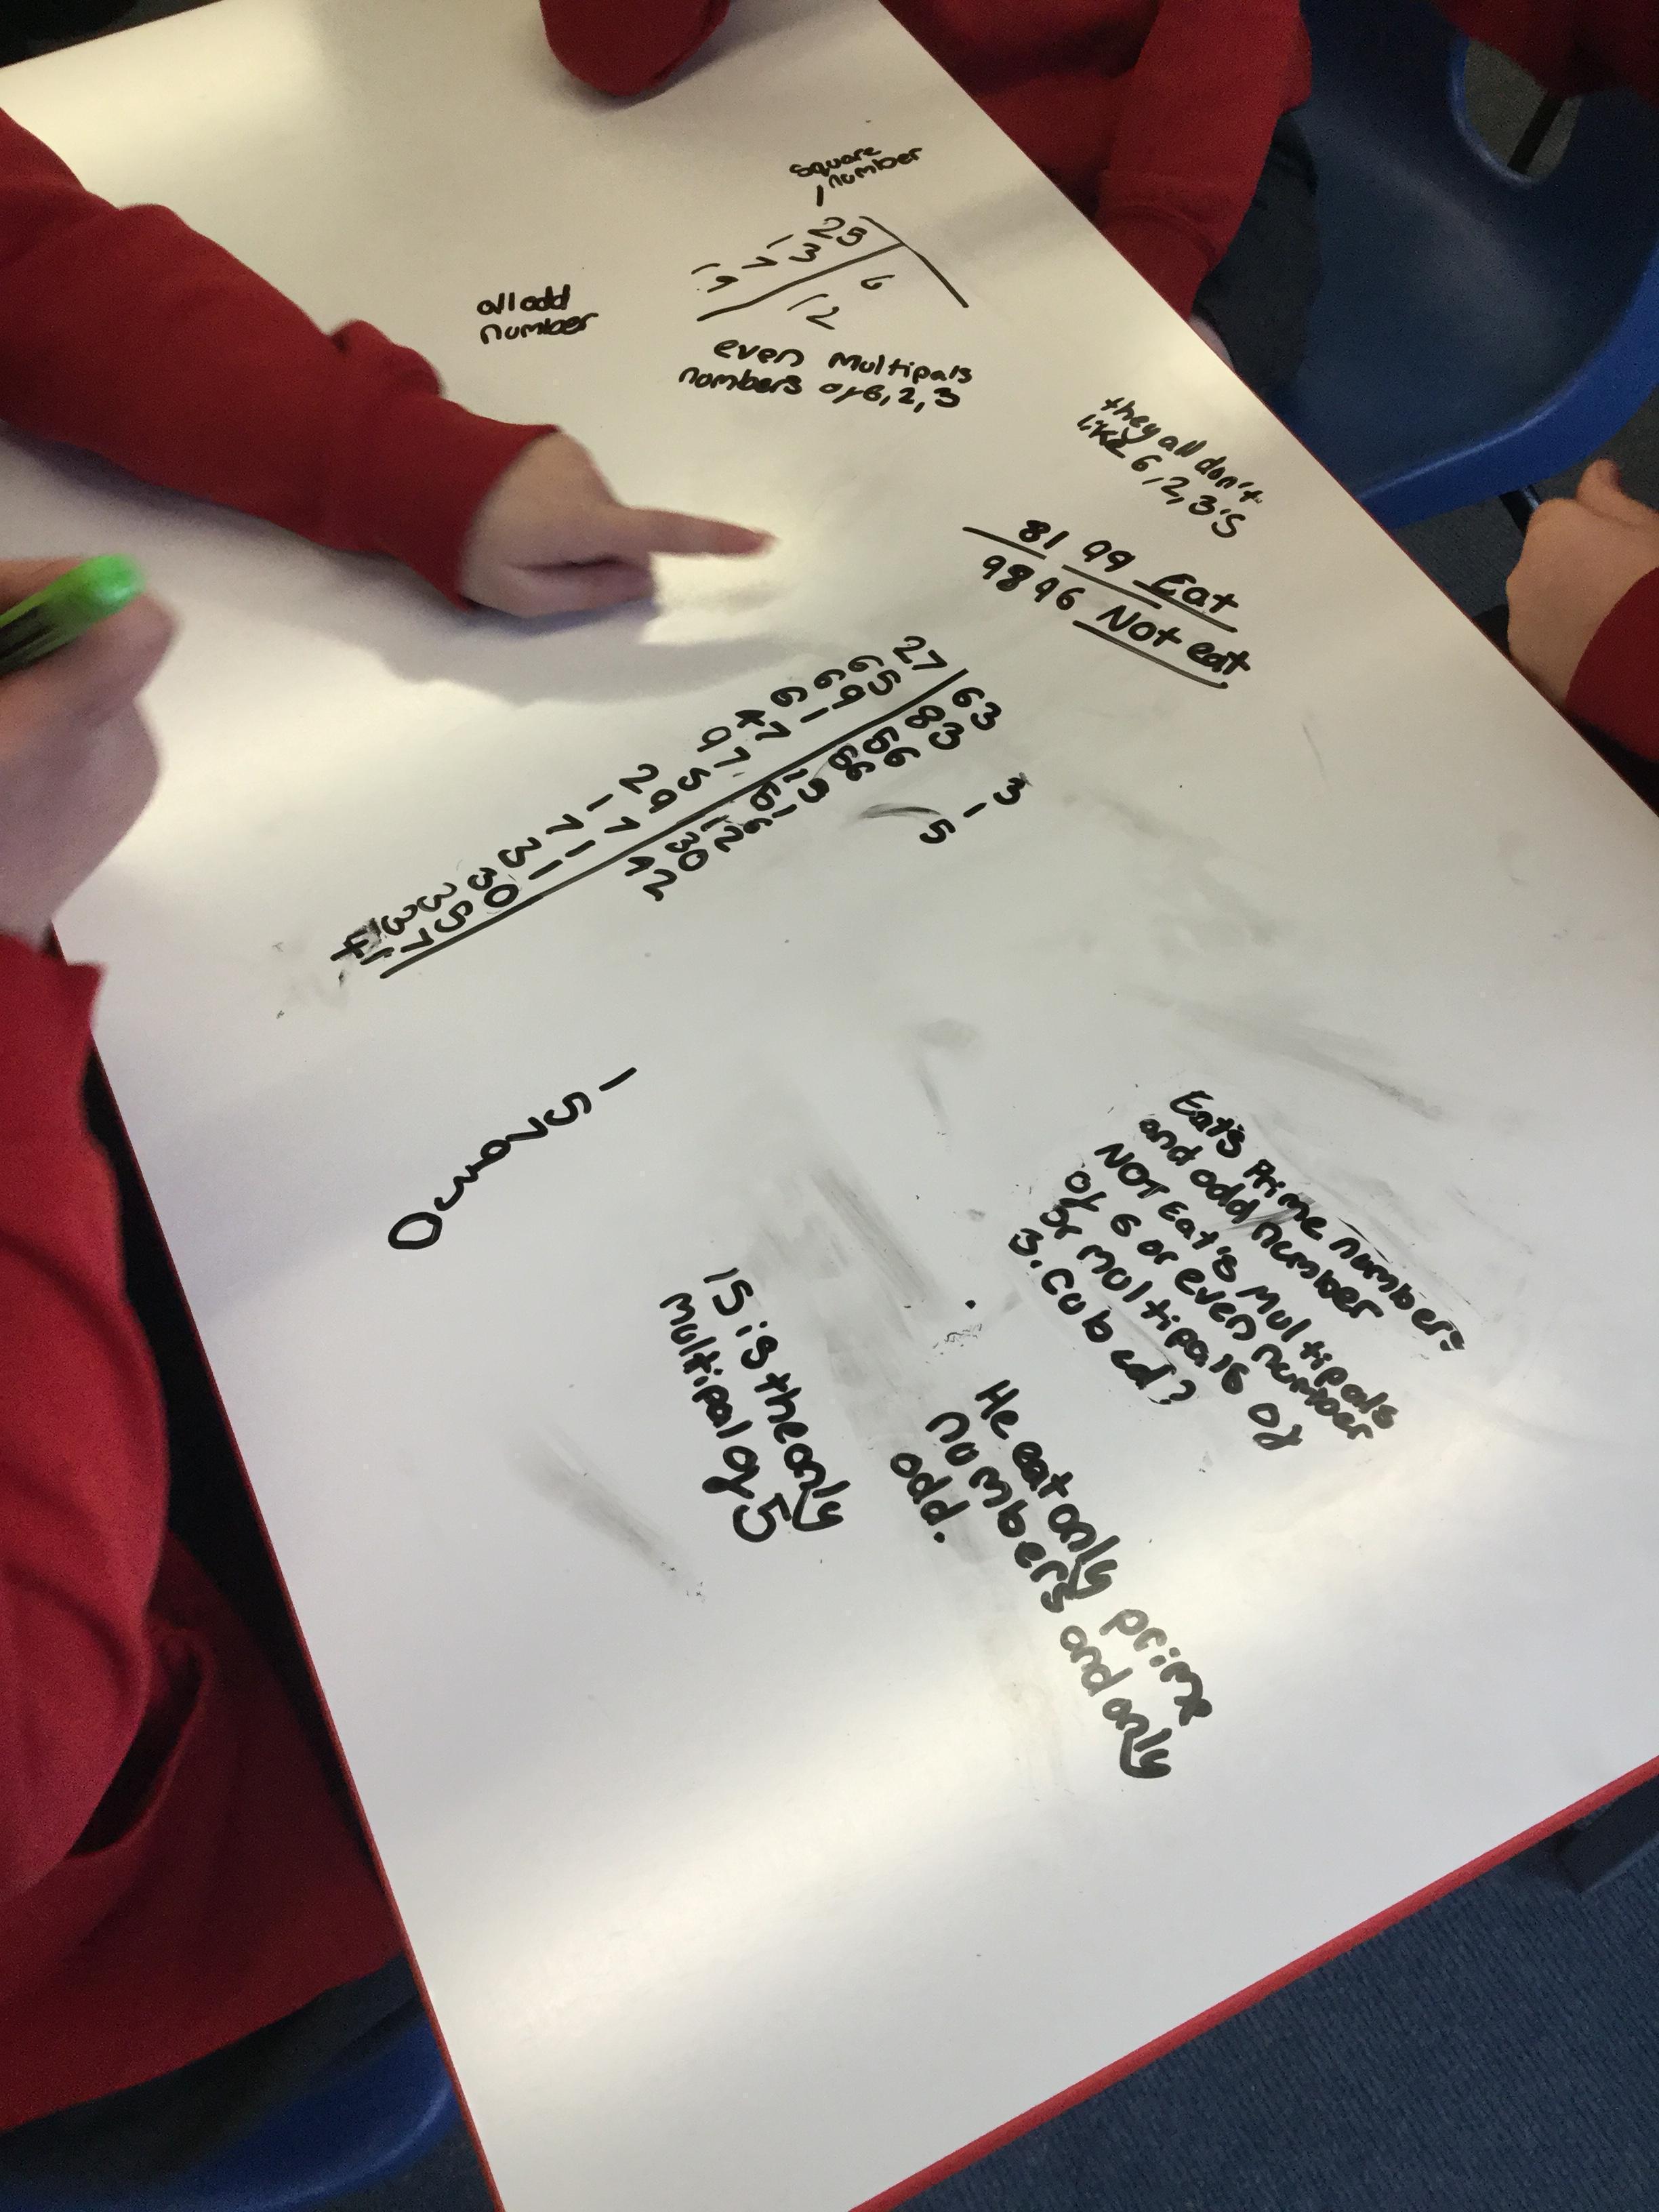 square
number
25
1 7 3
1 9
6
12
all odd
number
even multipals
numbers of 6, 2, 3
they all don't
like 6, 2, 3's
81 99 Eat
98 96 Not eat
27
65
69
61
47
97
5
29
1 7
7 1
3 1
30
35
37
41
63
83
56
66
15
61
126
30
42
3
1
5
1
5
7
9
3
0
Eat's Prime numbers
and odd number
NOT Eat's Multipals
of 6 or even number
or multipals of
3. Cubed?
He eat only prime
numbers and only
odd.
15 is the only
multipal of 5